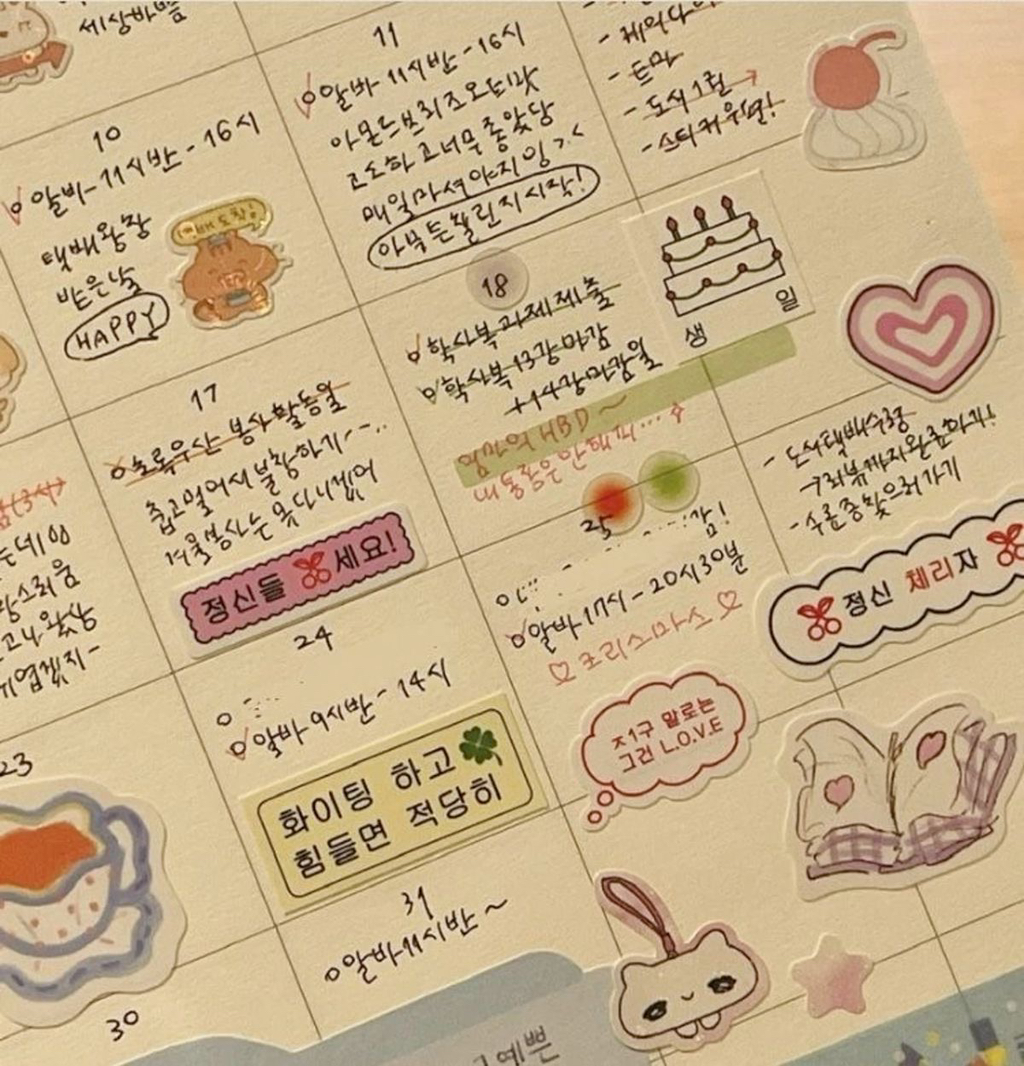 세상바쁨
10
알바 11시반 - 16시
택배왕창
받은날
HAPPY
11
알바 11시반 - 16시
아몬드브리즈오트맛
고소하고너무좋았당
매일마셔야지잉 >.<
아부튼챌린지시작!
- 도식1권 →
- 스티커우편!
17
초록우산 봉사활동일
춥고멀어서불참하기---..
겨울봉사는못다니겠어
정신들 세요!
18
학사복과제제출
학사복13강마감
+14강마감일
생
일
엄마의 HBD ~
- 도식택배수령
→리뷰까지완료하기!
- 수료증찾으러가기
정신 체리자
23
24
알바 9시반 - 14시
화이팅 하고
힘들면 적당히
25
알바 17시 - 20시30분
♡ 크리스마스 ♡
지구 말로는
그런 L.O.V.E
30
31
알바11시반 ~
예쁜